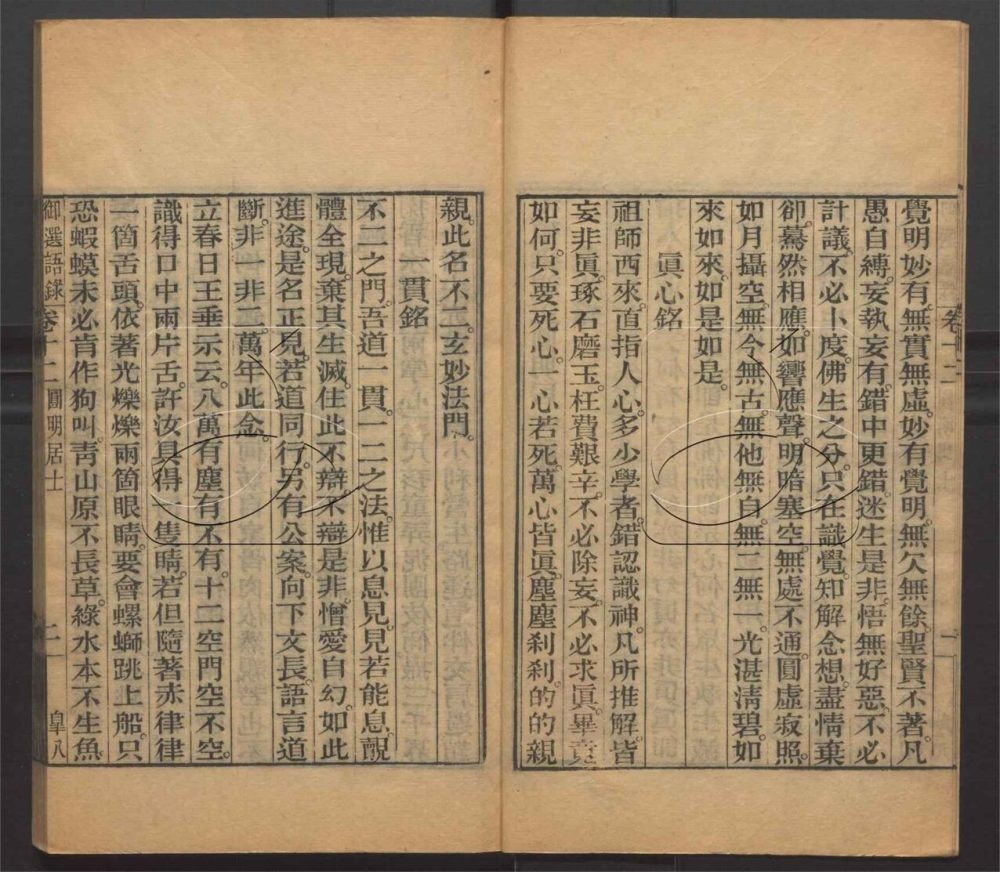 覺明妙有。無實無虛。妙有覺明。無欠無餘。聖賢不著。凡
愚自縛。妄執妄有。錯中更錯。迷生是非。悟無好惡。不必
計議。不必卜度。佛生之分。只在識覺。知解念想。盡情棄
卻。驀然相應。如響應聲。明暗塞空。無處不通。圓虛寂照。
如月攝空。無今無古。無他無自。無二無一。光湛清碧。如
來如來。如是如是。
眞心銘
祖師西來。直指人心。多少學者。錯認識神。凡所推解。皆
妄非眞。琢石磨玉。枉費艱辛。不必除妄。不必求眞。畢竟
如何。只要死心。一心若死。萬心皆眞。塵塵刹刹。的的親
親。此名不二。玄妙法門。
一貫銘
不二之門。吾道一貫。一二之法。惟以息見。見若能息。覿
體全現。棄其生滅。住此不辯。不辯是非。憎愛自幻。如此
進途。是名正見。若道同行。另有公案。向下文長。語言道
斷。非一非二。萬年此念。
立春日王垂示云。八萬有塵有不有。十二空門空不空。
識得口中兩片舌。許汝具得一隻睛。若但隨著赤律律
一箇舌頭。依著光爍爍兩箇眼睛。要會螺螄跳上船。只
恐蝦蟆未必肯作狗叫。青山原不長草。綠水本不生魚。
御選語錄 卷十二 圓明居士 二 皇八